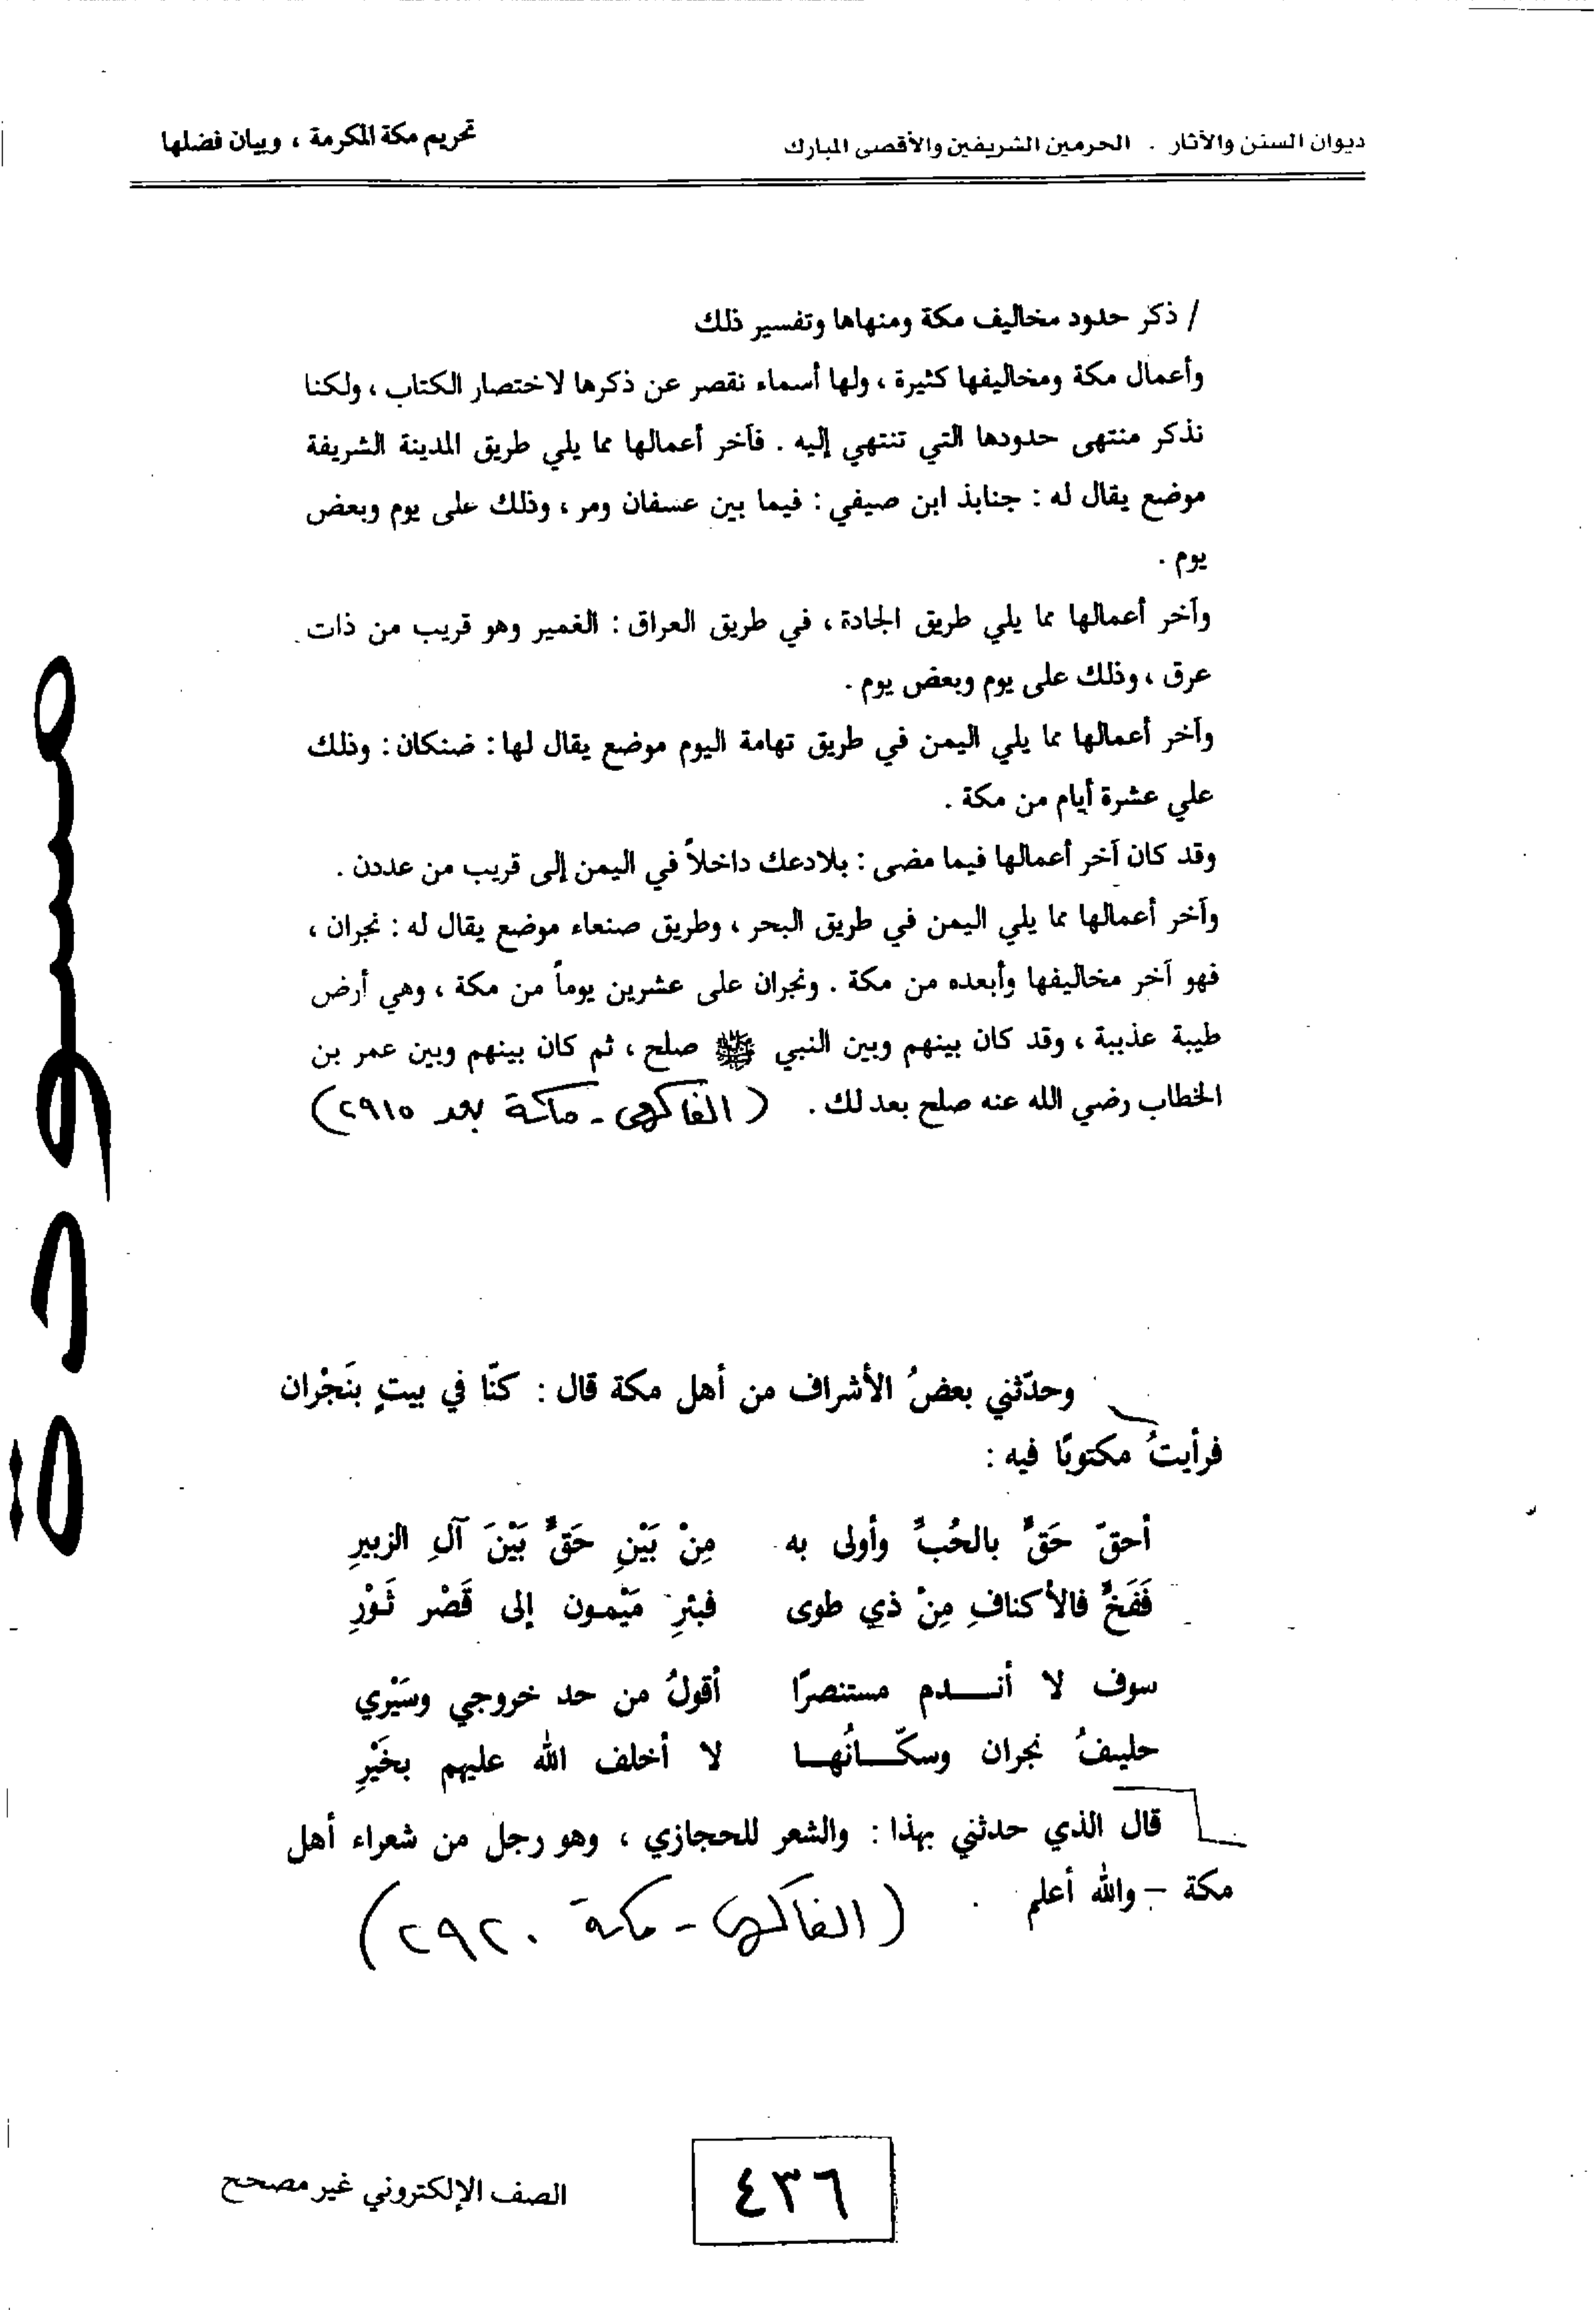 ديوان السنن والآثار . الحرمين الشريفين والأقصى المبارك
تحريم مكة المكرمة ، وبيان فضلها
/ ذكر حدود مخاليف مكة ومنهاها وتفسير ذلك
وأعمال مكة ومخاليفها كثيرة ، ولها أسماء نقصر عن ذكرها لاختصار الكتاب ، ولكنا
نذكر منتهى حدودها التي تنتهي إليه . فآخر أعمالها مما يلي طريق المدينة الشريفة
موضع يقال له : جنابذ ابن صيفي : فيما بين عسفان ومر ، وذلك على يوم وبعض
يوم .
وآخر أعمالها مما يلي طريق الجادة ، في طريق العراق : الغمير وهو قريب من ذات
عرق ، وذلك على يوم وبعض يوم .
وآخر أعمالها مما يلي اليمن في طريق تهامة اليوم موضع يقال لها : ضنكان : وذلك
علي عشرة أيام من مكة .
وقد كان آخر أعمالها فيما مضى : بلادعك داخلاً في اليمن إلى قريب من عددن .
وآخر أعمالها مما يلي اليمن في طريق البحر ، وطريق صنعاء موضع يقال له : نجران ،
فهو آخر مخاليفها وأبعده من مكة . ونجران على عشرين يوماً من مكة ، وهي أرض
طيبة عذيبة ، وقد كان بينهم وبين النبي ﷺ صلح ، ثم كان بينهم وبين عمر بن
الخطاب رضي الله عنه صلح بعد لك . ( الفاكهي - مكة بعد ٢٩١٥ )
وحدّثني بعضُ الأشراف من أهل مكة قال : كنّا في بيتٍ بنَجْران
فرأيتُ مكتوبًا فيه :
أحقّ حَقٌّ بالحُبِّ وأولى به مِنْ بَيْنِ حَقٍّ بَيْنَ آلِ الزبيرِ
فَفَخٍّ فالأكنافِ مِنْ ذي طوى فبئرِ مَيْمون إلى قَصْر ثَوْرِ
سوف لا أندم مستنصرًا أقولُ من حد خروجي وسَيْري
حليفُ نجران وسكّانُها لا أخلف الله عليهم بخَيْرِ
قال الذي حدثني بهذا : والشعر للحجازي ، وهو رجل من شعراء أهل
مكة – والله أعلم . ( الفاكهي - مكة ٢٩٢٠ )
مسودة
٤٣٦
الصف الإلكتروني غير مصحح